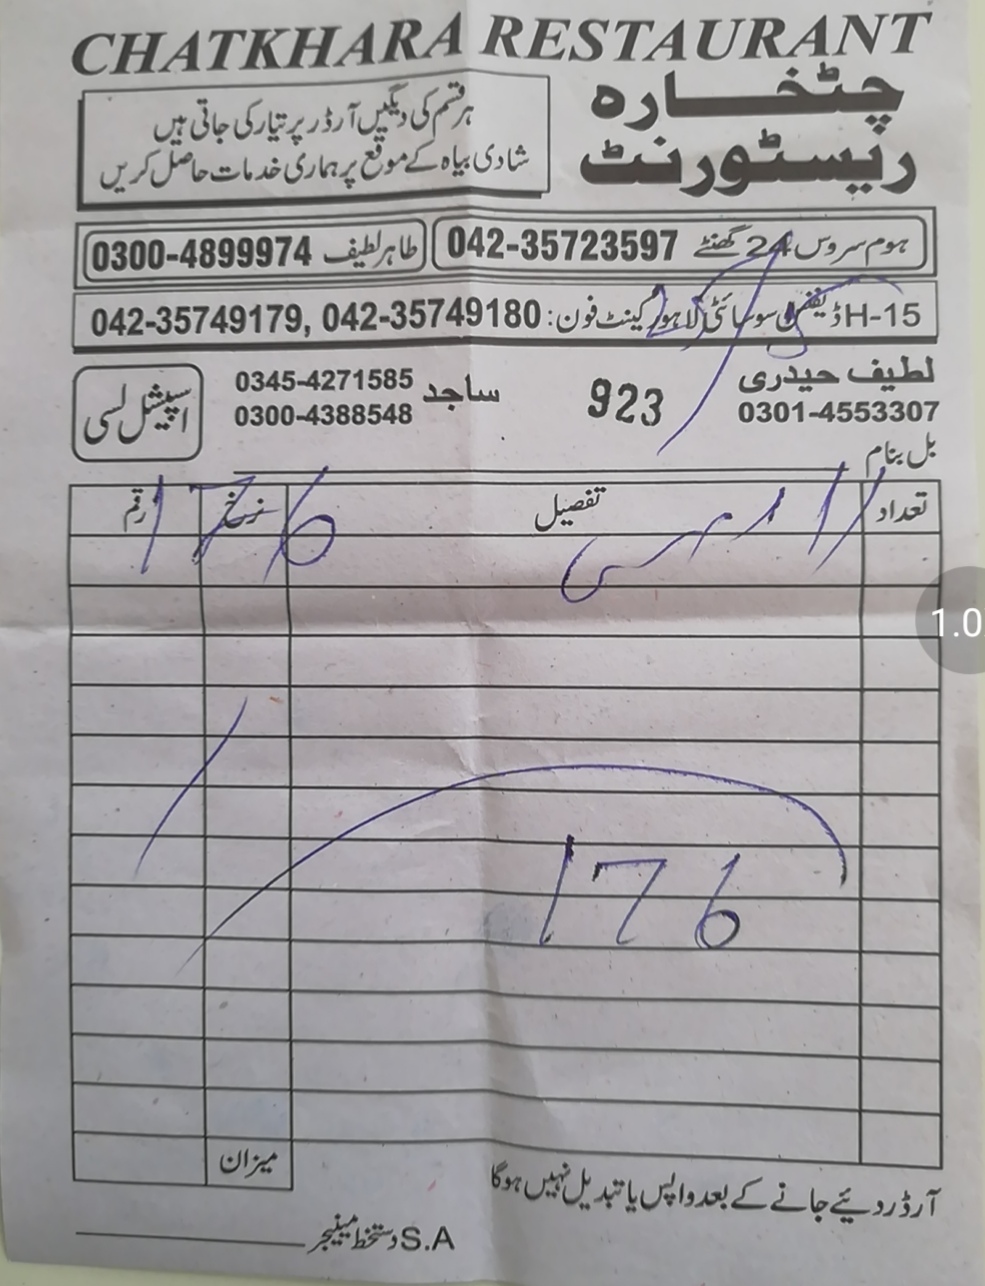 CHATKHARA RESTAURANT
چٹخارہ
ریسٹورنٹ
ہر قسم کی دیگیں آرڈر پر تیار کی جاتی ہیں
شادی بیاہ کے موقع پر ہماری خدمات حاصل کریں
ہوم سروس 24 گھنٹے 042-35723597
طاہر لطیف 0300-4899974
H-15 ڈیفنس سوسائٹی لاہور کینٹ فون: 042-35749179, 042-35749180
لطیف حیدری
0301-4553307
923
ساجد 0345-4271585
0300-4388548
اسپیشل لسی
بل بنام
تعداد تفصیل نرخ رقم
176
176
میزان
آرڈر دئیے جانے کے بعد واپس یا تبدیل نہیں ہوگا
S.A دستخط مینیجر
1.0